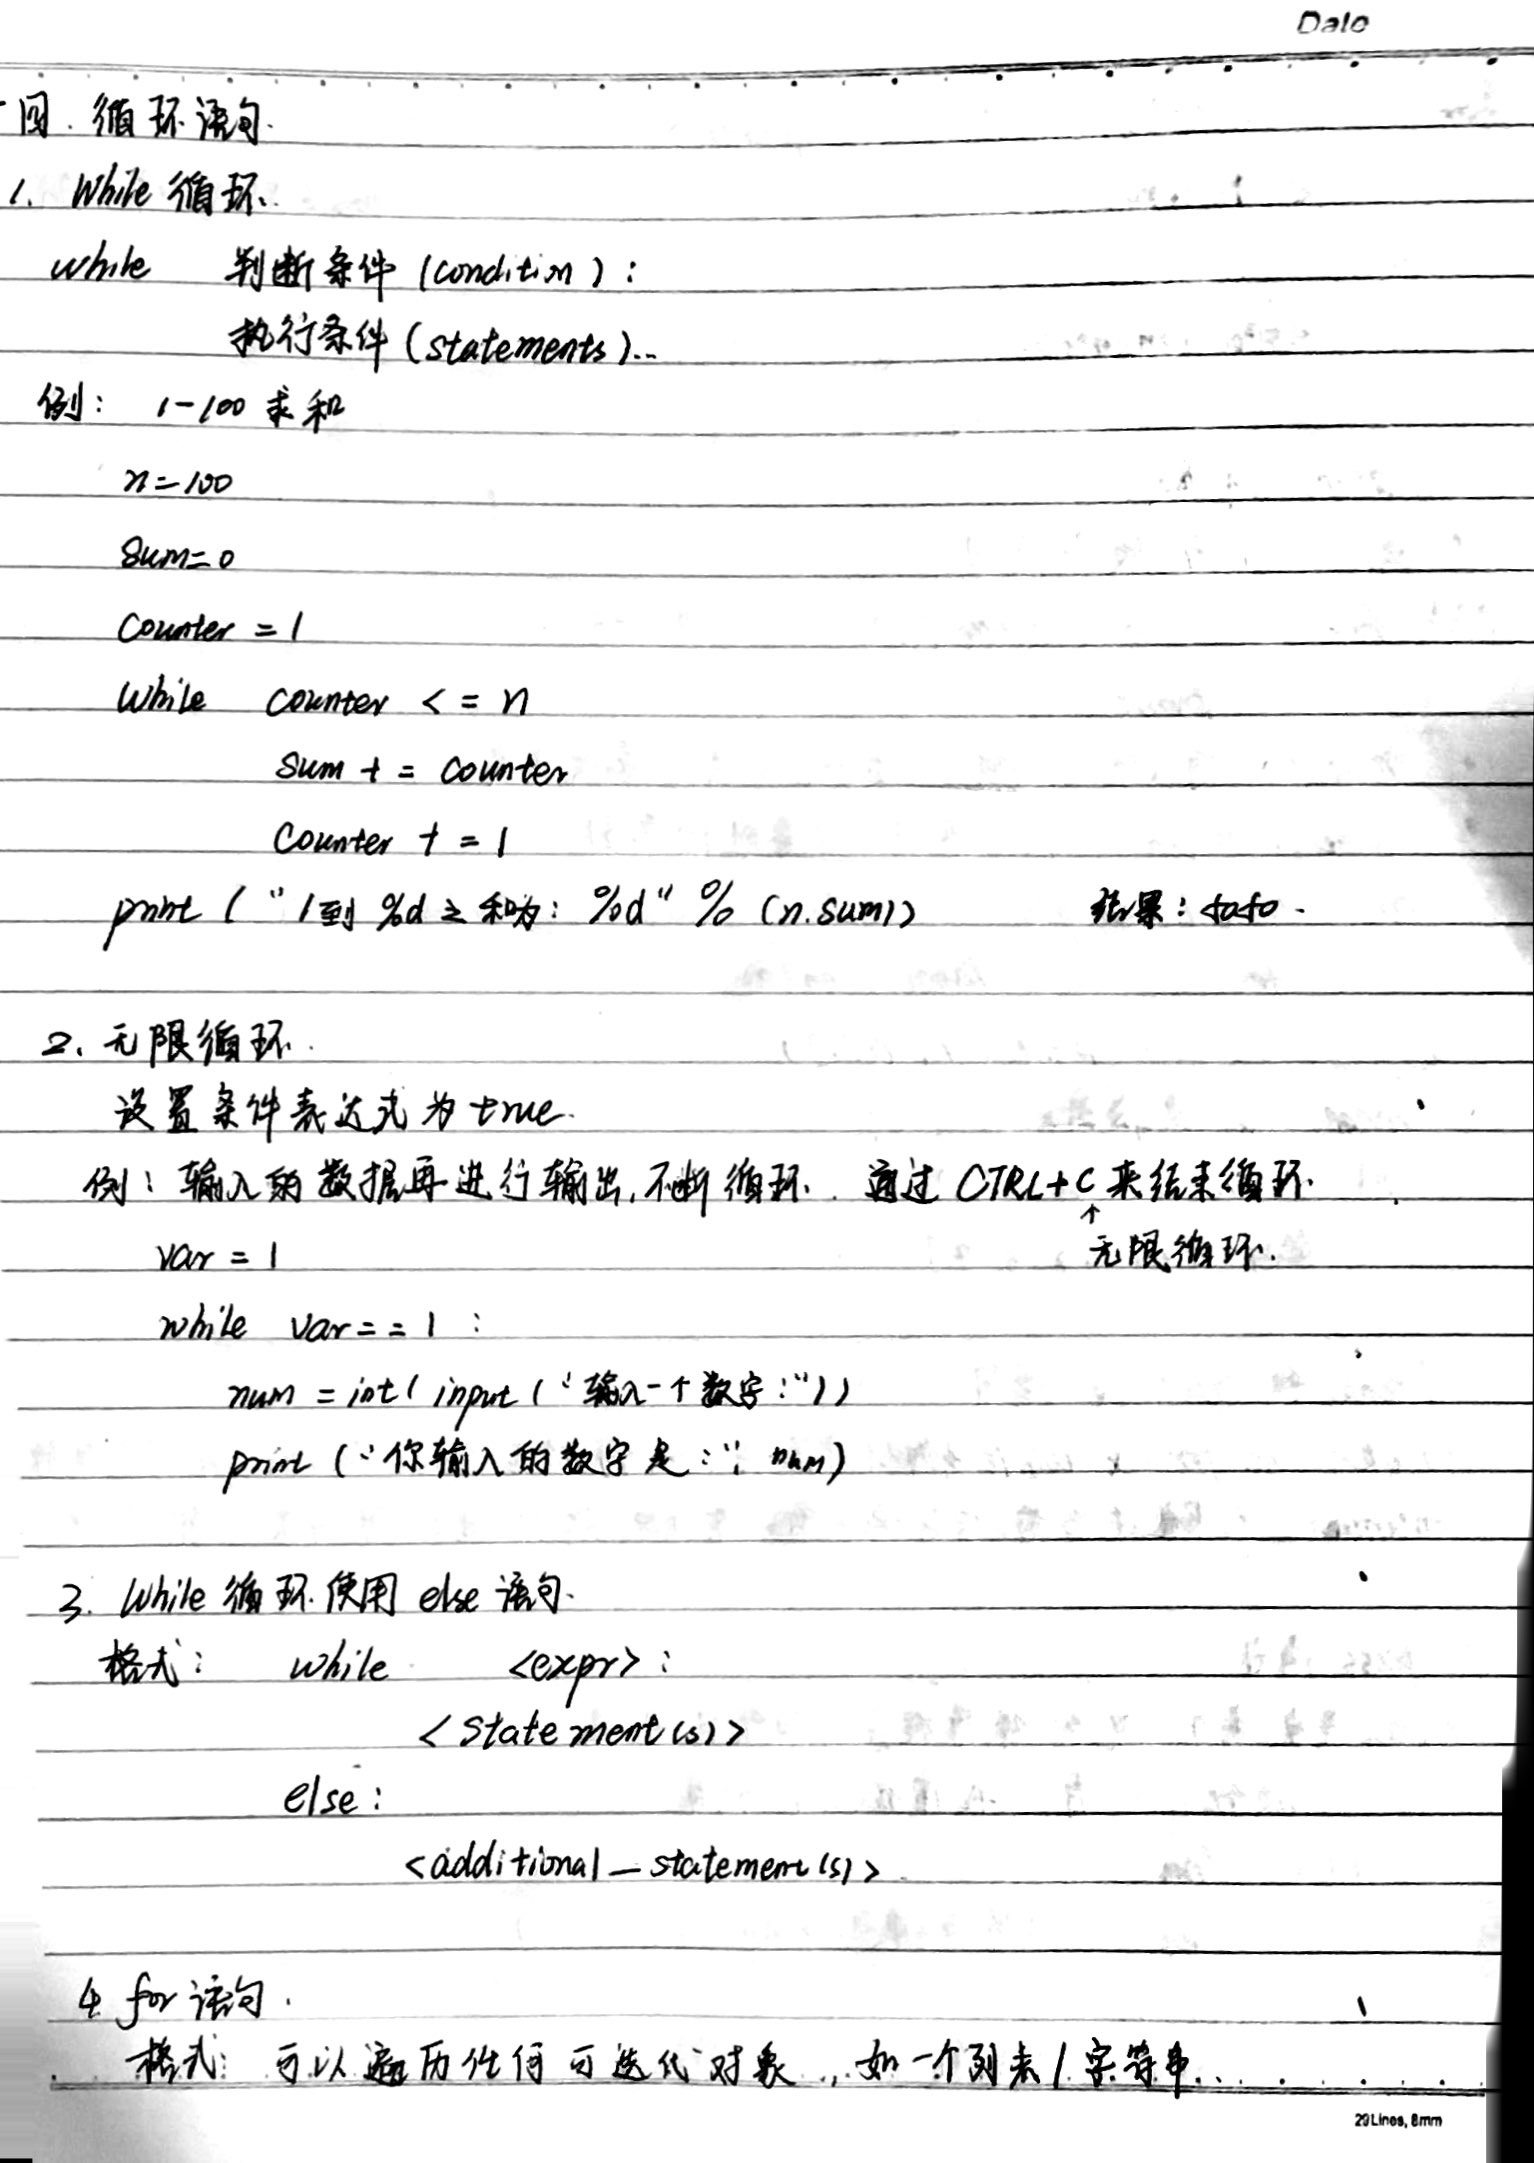 Date
四. 循环语句.
1. While 循环.
while 判断条件 (condition):
执行条件 (statements)...
例: 1-100 求和
n=100
Sum=0
Counter = 1
While counter <= n
Sum += counter
Counter += 1
print ("1到 %d 之和为: %d" % (n.sum)) 结果: 5050.
2. 无限循环.
设置条件表达式为 true.
例: 输入的数据再进行输出, 不断循环. 通过 CTRL+C 来结束循环.
↑
var = 1 无限循环.
while var == 1 :
num = int( input ("输入一个数字:"))
print ("你输入的数字是:", num)
3. While 循环使用 else 语句.
格式: while <expr>:
<statement(s)>
else:
<additional_statement(s)>
4 for 语句.
格式: 可以遍历任何可迭代对象, 如一个列表/字符串.
29Lines, 8mm